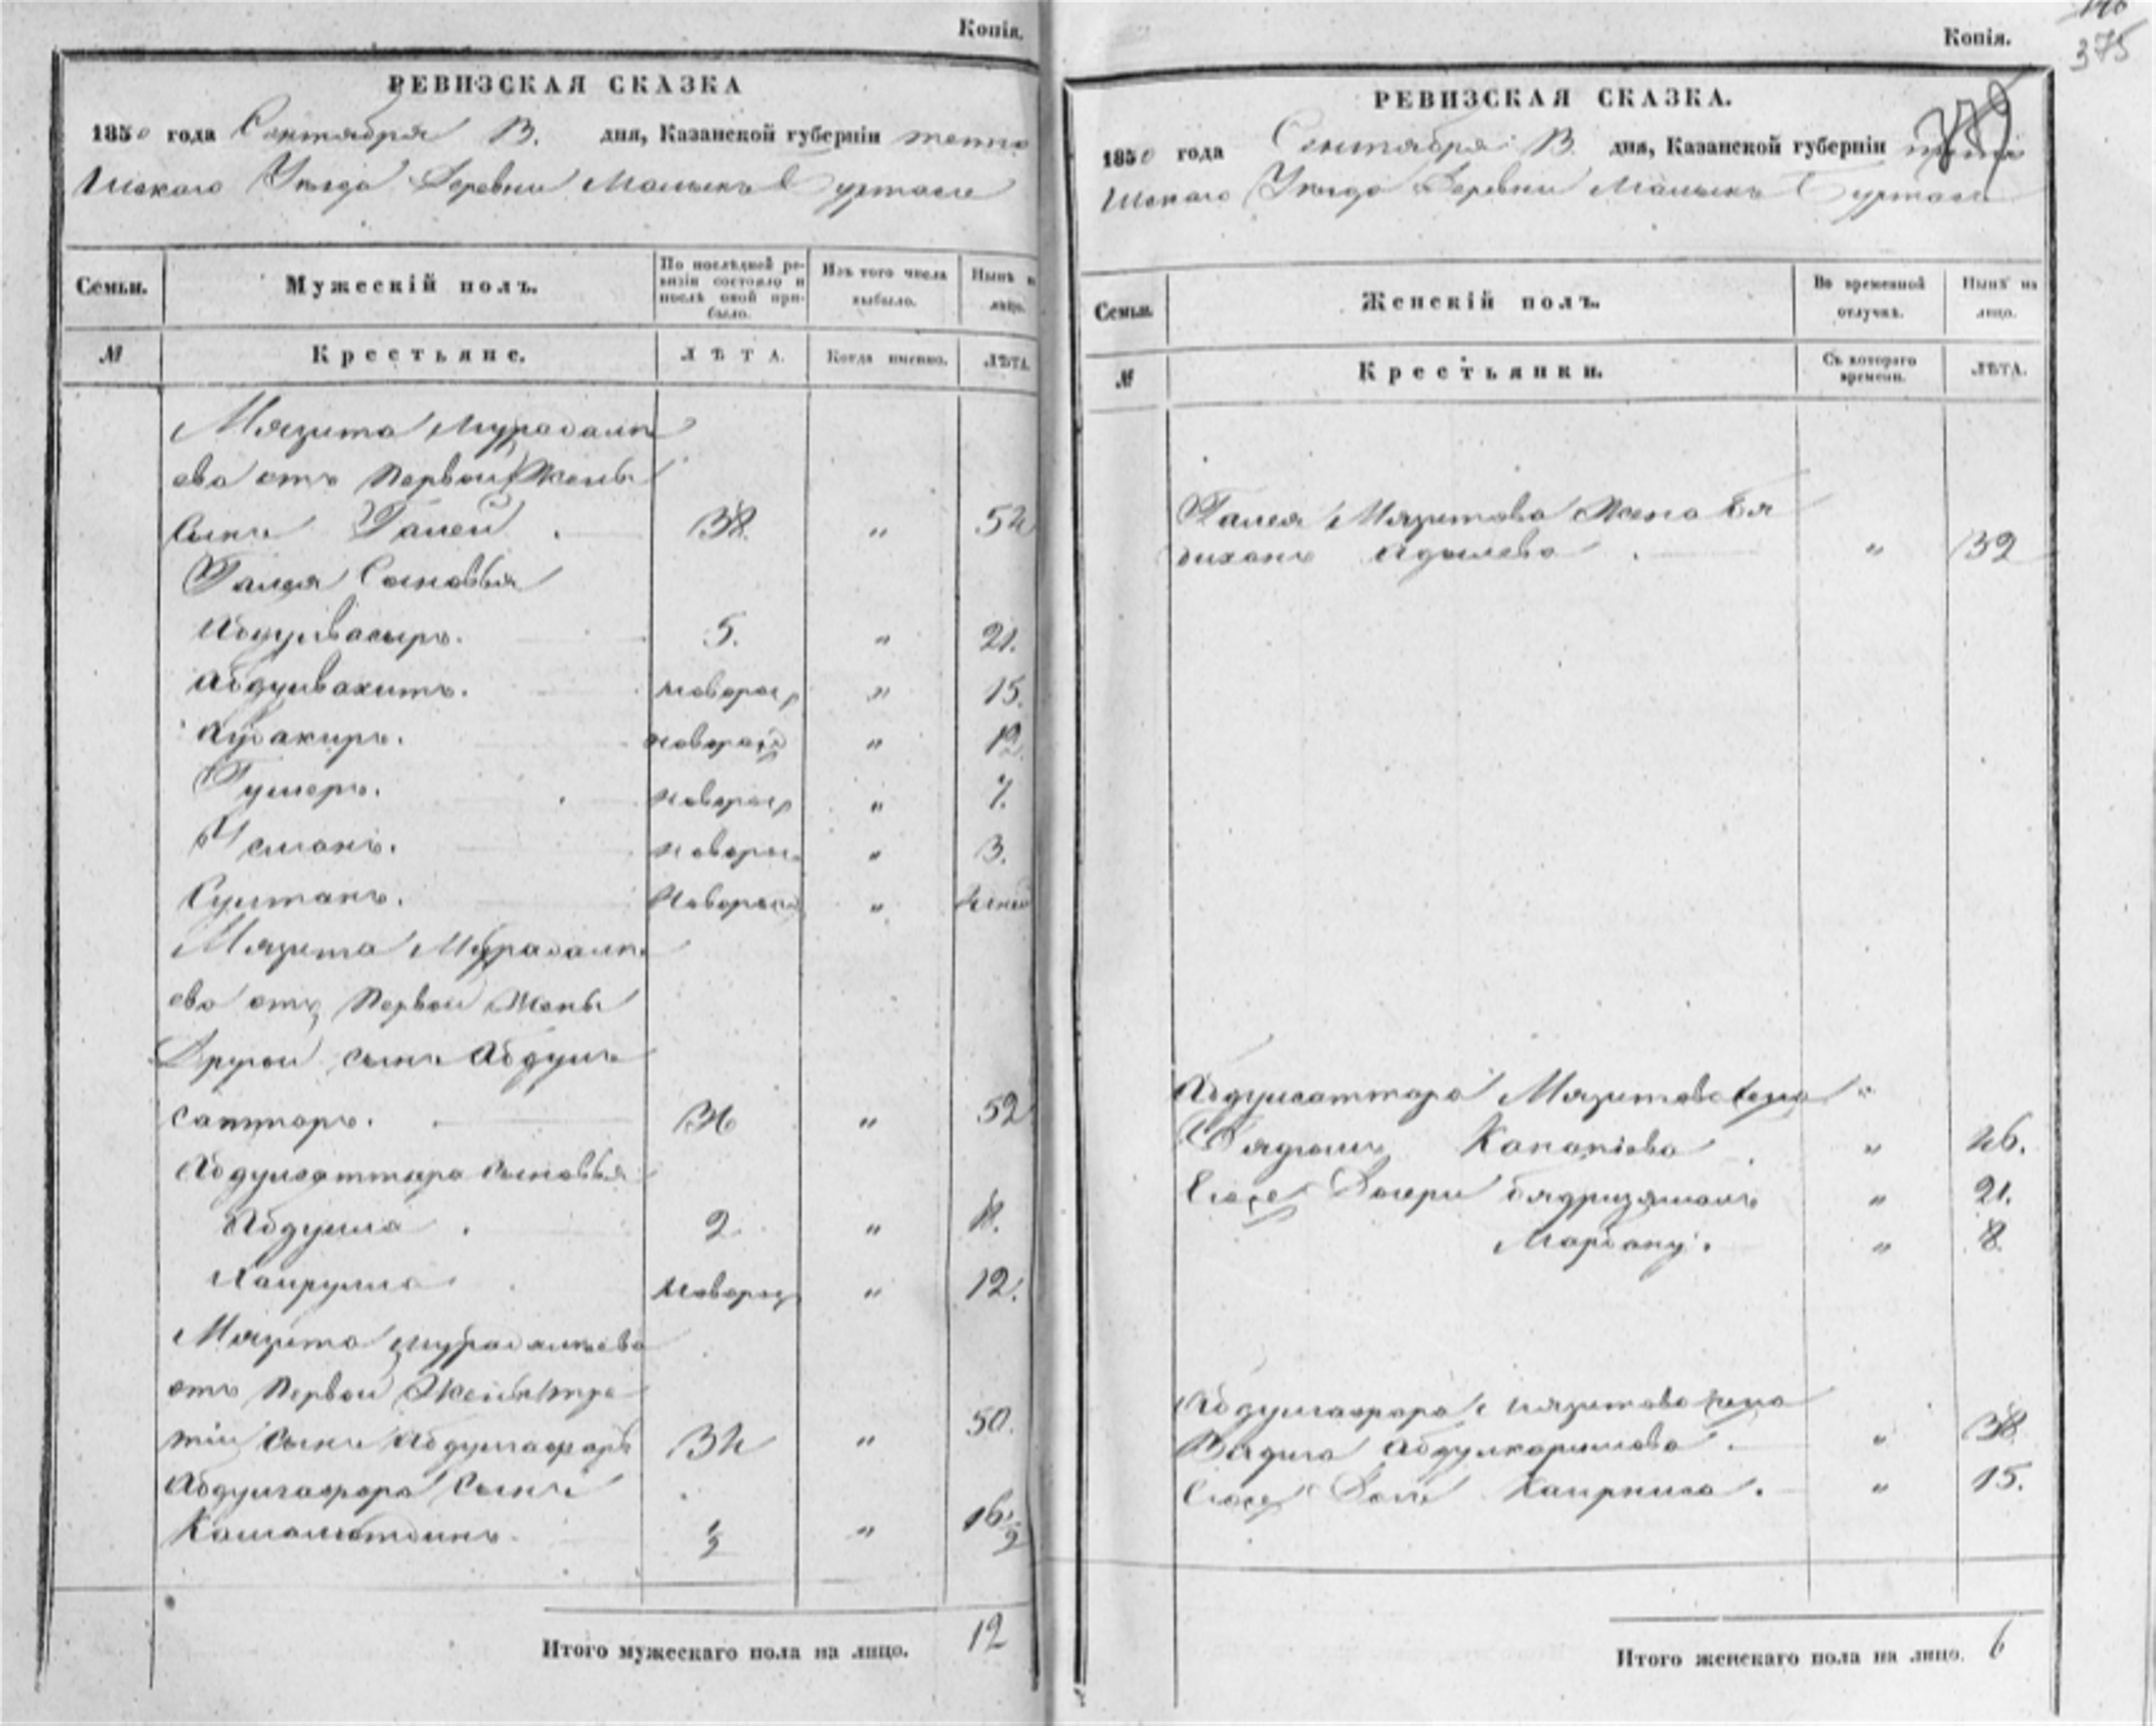 Копія.
РЕВИЗСКАЯ СКАЗКА
1850 года Сентября В. дня, Казанской губерніи тетю
шскаго Уѣзда Деревни Малыхъ Буртасъ
Семьи.
Мужескій полъ.
По послѣдней ре-
визіи состояло и
послѣ оной при-
было.
Изъ того числа
выбыло.
Нынѣ на
лицо.
№
Крестьяне.
ЛѢТА.
Когда именно.
ЛѢТА.
Мязита Мурадали
ева отъ первой жены
Сынъ Галей 38. " 54
Галея Сыновья
Абдулвасыръ. 5. " 21.
Абдулвахитъ. новорож " 15.
новорож " 12.
Гумеръ. новорож " 7.
Усманъ. новорож " 3.
Султанъ. Новорож "
Мязита Мурадали
ева отъ первой жены
Другой сынъ Абдул
саттаръ. 36 " 52
Абдулсаттара Сыновья
Абдулла 2 "
Хайрулла новорож " 12.
Мязита Мурадаліева
отъ первой жены тре
тій сынъ Абдулгафаръ 34 " 50.
Абдулгафара Сынъ
Камалетдинъ ½ " 16½
Итого мужескаго пола на лицо. 12
Копія.
375
РЕВИЗСКАЯ СКАЗКА.
1850 года Сентября В. дня, Казанской губерніи тетю
шскаго Уѣзда Деревни Малыхъ Буртасъ
Семьи.
Женскій полъ.
Во временной
отлучкѣ.
Нынѣ на
лицо.
№
Крестьянки.
Съ котораго
времени.
ЛѢТА.
Галея Мязитова жена Бя
диханъ Адылева " 39
Абдулсаттара Мязитова жена
Канапіева " 46.
Егоже Дочери Бядризямалъ " 21.
" 8.
Абдулгафара Мязитова жена
Вадига Абдулкаримова " 38
Егоже Дочь Хайрниса. " 15.
Итого женскаго пола на лицо. 6